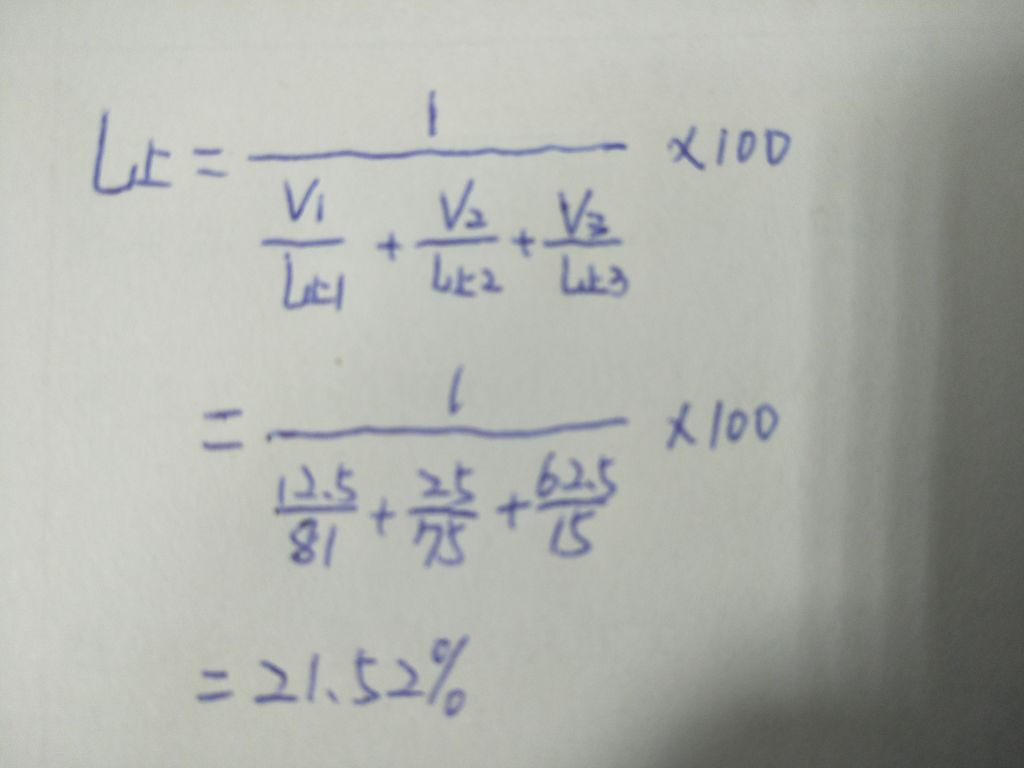 L上 = 1 / (V1/L上1 + V2/L上2 + V3/L上3) ×100
= 1 / (12.5/81 + 25/75 + 62.5/15) ×100
= 21.52%